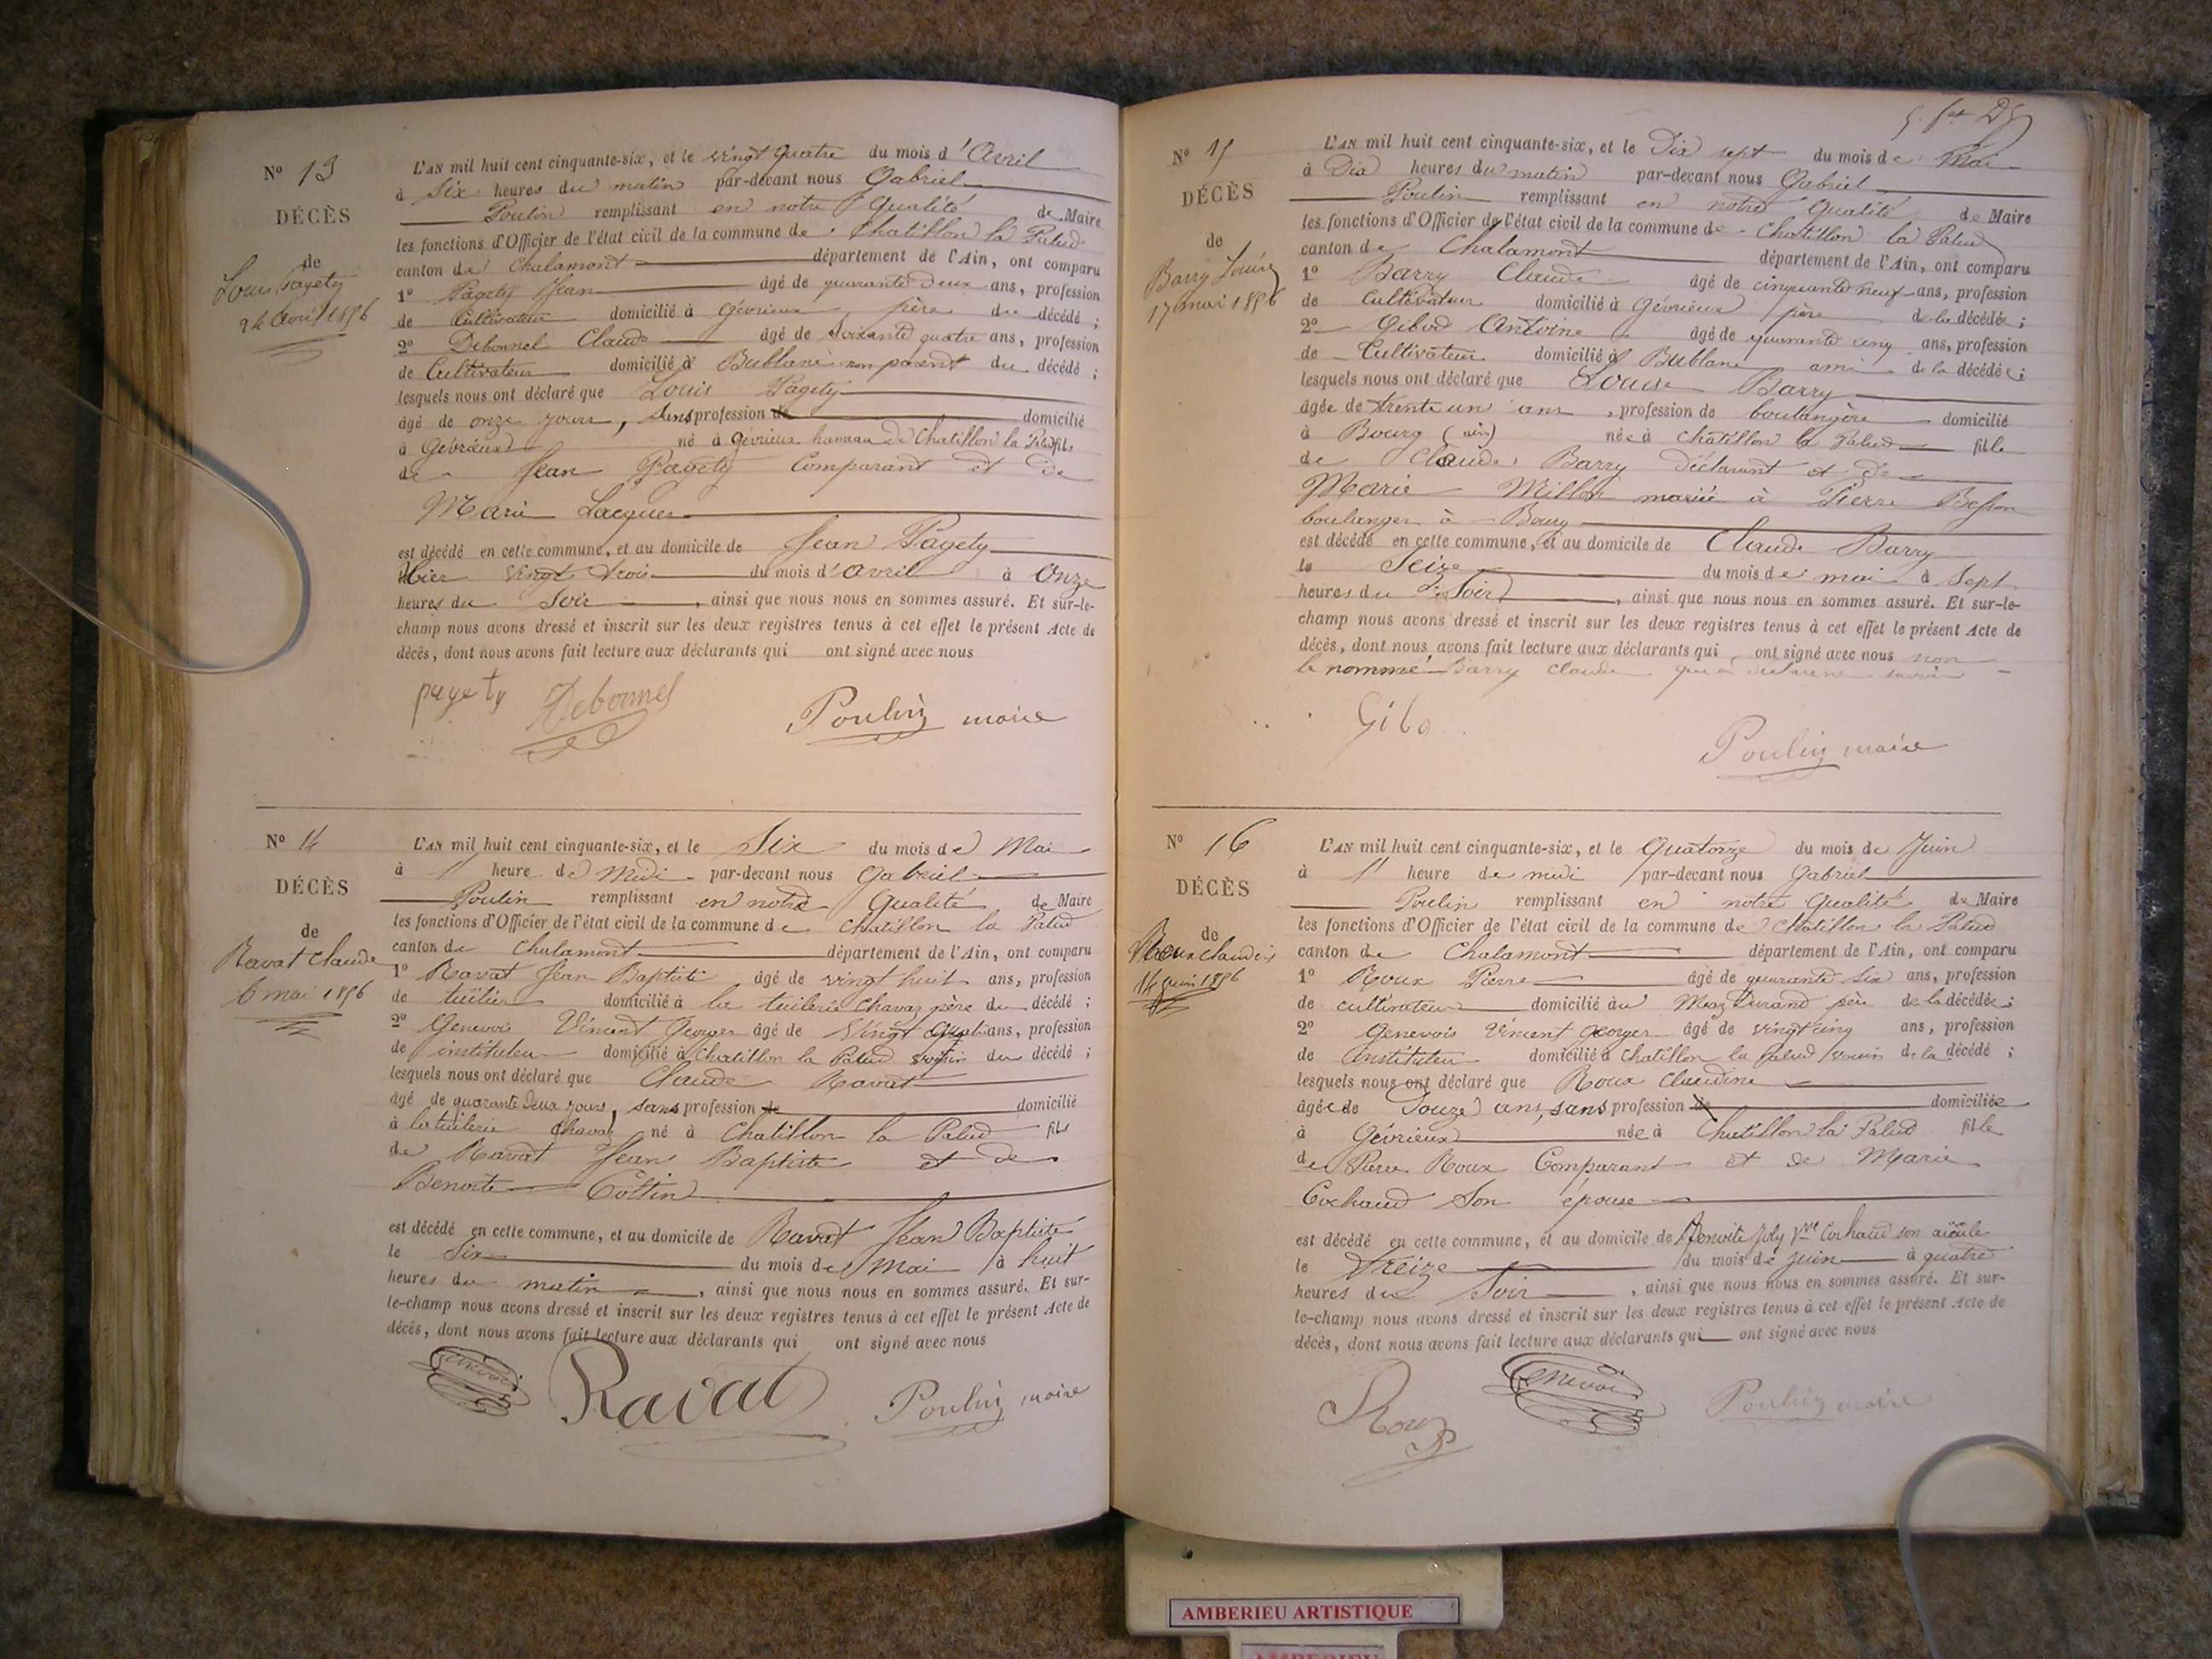 N° 13
DÉCÈS
de
Louis Pagety
24 Avril 1856
L'AN mil huit cent cinquante-six, et le vingt quatre du mois d'Avril
à Six heures du matin par-devant nous Gabriel
Poulin remplissant en notre Qualité de Maire
les fonctions d'Officier de l'état civil de la commune de Chatillon la Palud
canton de Chalamont département de l'Ain, ont comparu
1° Pagety Jean âgé de quarante deux ans, profession
de Cultivateur domicilié à Gévrieux, père du décédé ;
2° Debonnel Claude âgé de soixante quatre ans, profession
de Cultivateur domicilié à Bublane non parent du décédé ;
lesquels nous ont déclaré que Louis Pagety
âgé de onze jours, sans profession de domicilié
à Gévrieux né à Gévrieux hameau de Chatillon la Palud fils
de Jean Pagety Comparant et de
Marie Lacquer
est décédé en cette commune, et au domicile de Jean Pagety
hier vingt trois du mois d'avril à Onze
heures du Soir, ainsi que nous nous en sommes assuré. Et sur-le-
champ nous avons dressé et inscrit sur les deux registres tenus à cet effet le présent Acte de
décès, dont nous avons fait lecture aux déclarants qui ont signé avec nous
pagety Debonnel Poulin maire
N° 14
DÉCÈS
de
Ravat Claude
6 mai 1856
L'AN mil huit cent cinquante-six, et le Six du mois de Mai
à 1 heure de Midi par-devant nous Gabriel
Poulin remplissant en notre Qualité de Maire
les fonctions d'Officier de l'état civil de la commune de Chatillon la Palud
canton de Chalamont département de l'Ain, ont comparu
1° Ravat Jean Baptiste âgé de vingt huit ans, profession
de tuilier domicilié à la tuilerie Chavaz père du décédé ;
2° Genevois Vincent Georges âgé de Vingt Quatre ans, profession
de instituteur domicilié à Chatillon la Palud voisin du décédé ;
lesquels nous ont déclaré que Claude Ravat
âgé de quarante deux jours, sans profession de domicilié
à la tuilerie Chavaz né à Chatillon la Palud fils
de Ravat Jean Baptiste et de
Benoite Cottin
est décédé en cette commune, et au domicile de Ravat Jean Baptiste
le Six du mois de Mai à huit
heures du matin, ainsi que nous nous en sommes assuré. Et sur-
le-champ nous avons dressé et inscrit sur les deux registres tenus à cet effet le présent Acte de
décès, dont nous avons fait lecture aux déclarants qui ont signé avec nous
Genevois Ravat Poulin maire
N° 15
DÉCÈS
de
Barry Louise
17 mai 1856
L'AN mil huit cent cinquante-six, et le Dix sept du mois de Mai
à Dix heures du matin par-devant nous Gabriel
Poulin remplissant en notre Qualité de Maire
les fonctions d'Officier de l'état civil de la commune de Chatillon la Palud
canton de Chalamont département de l'Ain, ont comparu
1° Barry Claude âgé de cinquante neuf ans, profession
de Cultivateur domicilié à Gévrieux père de la décédée ;
2° Gibod Antoine âgé de quarante cinq ans, profession
de Cultivateur domicilié à Bublane ami de la décédée ;
lesquels nous ont déclaré que Louise Barry
âgée de trente un ans, profession de boulangère domicilié
à Bourg (ain) née à Chatillon la Palud fille
de Claude Barry Déclarant et de
Marie Millon mariée à Pierre Besson
boulanger à Bourg
est décédé en cette commune, et au domicile de Claude Barry
le Seize du mois de mai à Sept
heures du Soir, ainsi que nous nous en sommes assuré. Et sur-le-
champ nous avons dressé et inscrit sur les deux registres tenus à cet effet le présent Acte de
décès, dont nous avons fait lecture aux déclarants qui ont signé avec nous non
le nommé Barry Claude qui a déclaré ne savoir
Gibo Poulin maire
N° 16
DÉCÈS
de
Roux Claudine
14 juin 1856
L'AN mil huit cent cinquante-six, et le Quatorze du mois de Juin
à 1 heure de midi par-devant nous Gabriel
Poulin remplissant en notre Qualité de Maire
les fonctions d'Officier de l'état civil de la commune de Chatillon la Palud
canton de Chalamont département de l'Ain, ont comparu
1° Roux Pierre âgé de quarante Six ans, profession
de cultivateur domicilié au Maz Durand père de la décédée ;
2° Genevois Vincent Georges âgé de vingt cinq ans, profession
de Instituteur domicilié à Chatillon la palud voisin de la décédé ;
lesquels nous ont déclaré que Roux Claudine
âgée de Douze ans, sans profession de domiciliée
à Gévrieux née à Chatillon la Palud fille
de Pierre Roux Comparant et de Marie
Cochaud Son épouse
est décédé en cette commune, et au domicile de Benoite Joly Vve Cochaud son aïeule
le Treize du mois de juin à quatre
heures du Soir, ainsi que nous nous en sommes assuré. Et sur-
le-champ nous avons dressé et inscrit sur les deux registres tenus à cet effet le présent Acte de
décès, dont nous avons fait lecture aux déclarants qui ont signé avec nous
Roux Genevois Poulin maire
AMBERIEU ARTISTIQUE
AMBERIEU